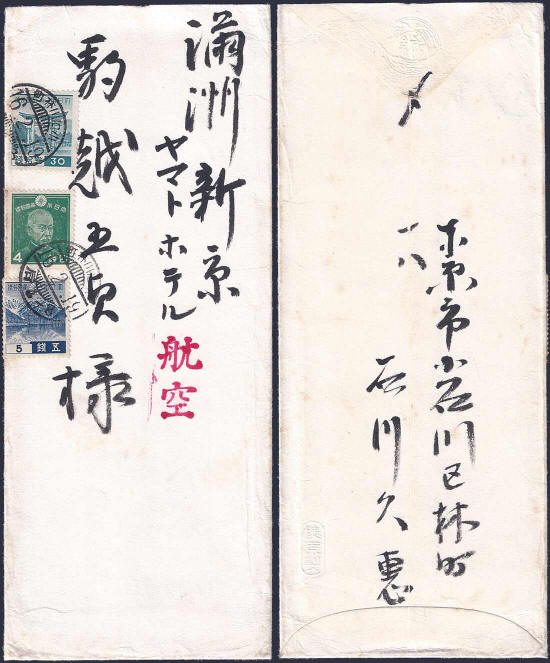 満洲新京
ヤマトホテル
駒越五貞様
航空
30
4
5 銭五
〆
東京市小石川区林町
一八
石川久恵